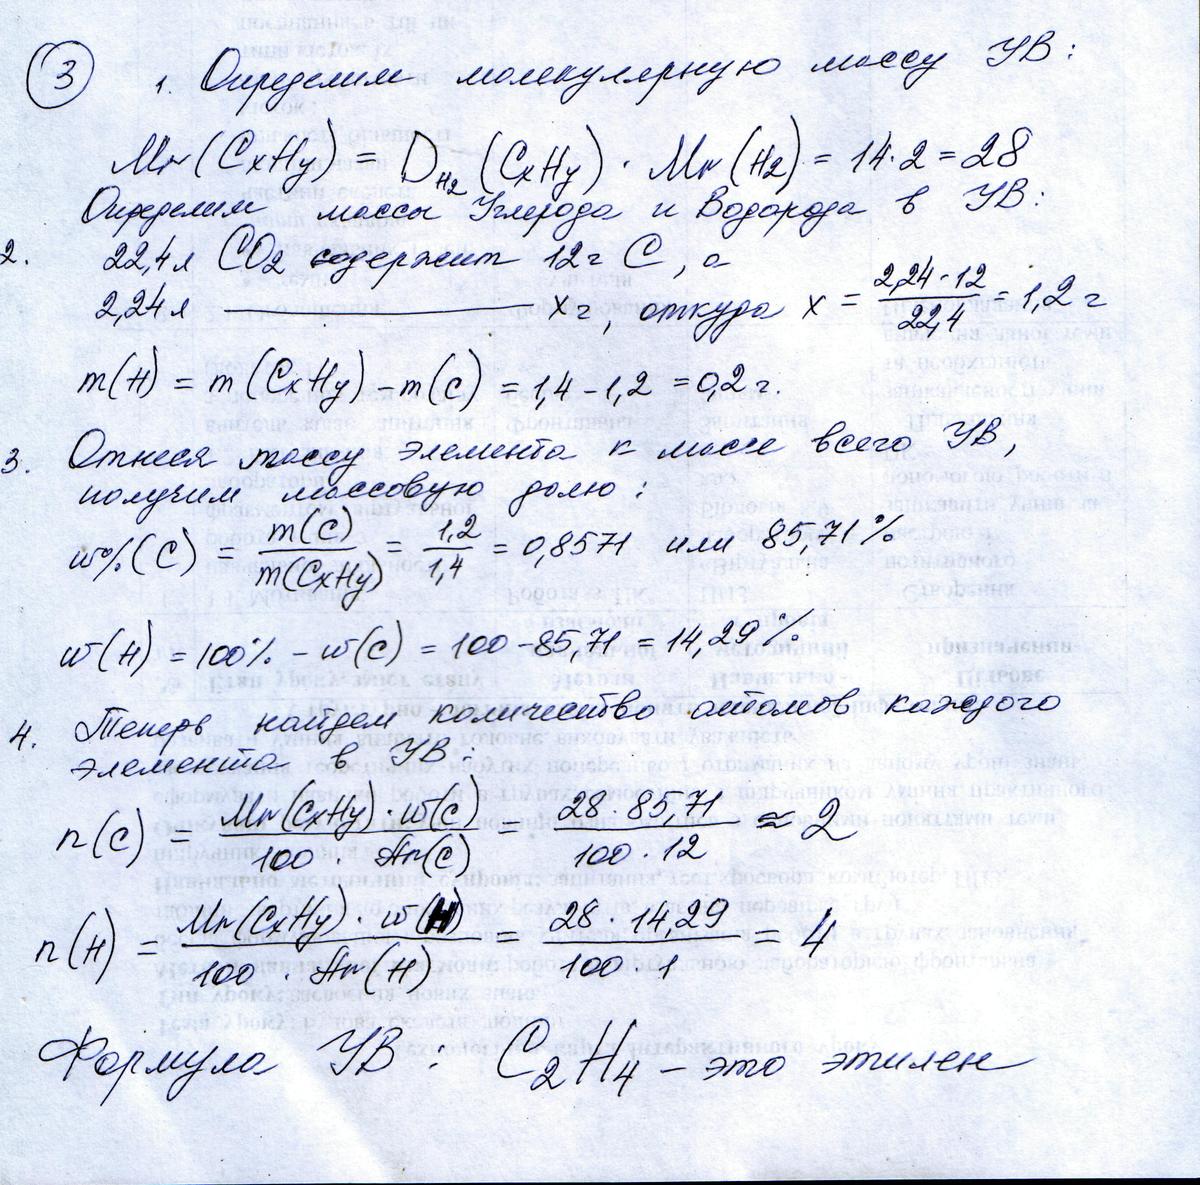 3
1. Определим молекулярную массу УВ:
Mr(CxHy) = D_H2 (CxHy) · Mr(H2) = 14·2 = 28
Определим массы Углерода и Водорода в УВ:
2. 22,4л CO2 содержит 12г C, а
2,24л ——— x г, откуда x = 2,24·12/22,4 = 1,2 г
m(H) = m(CxHy) – m(C) = 1,4 – 1,2 = 0,2 г.
3. Отнеся массу элемента к массе всего УВ,
получим массовую долю:
w%(C) = m(C)/m(CxHy) = 1,2/1,4 = 0,8571 или 85,71%
w(H) = 100% – w(C) = 100 – 85,71 = 14,29%
4. Теперь найдем количество атомов каждого
элемента в УВ:
n(C) = Mr(CxHy) · w(C)/100 · Ar(C) = 28·85,71/100·12 ≈ 2
n(H) = Mr(CxHy) · w(H)/100 · Ar(H) = 28·14,29/100·1 = 4
Формула УВ: C2H4 – это этилен